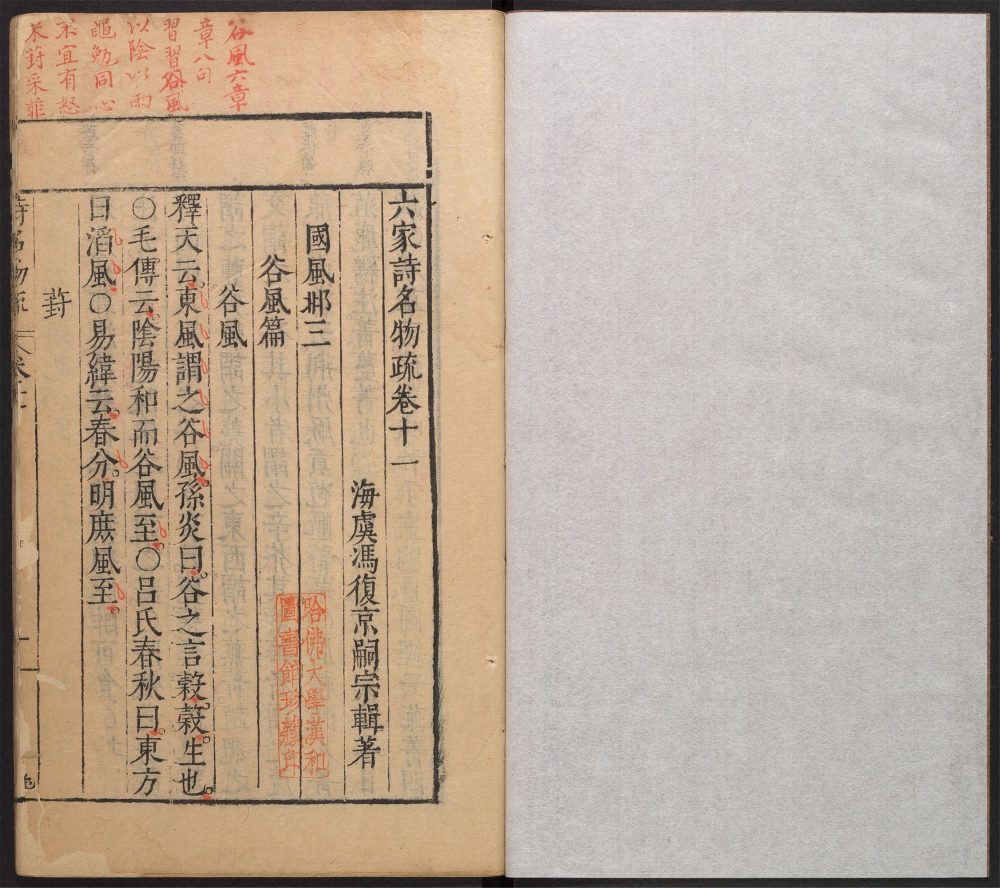 谷風六章
章八句
習習谷風
以陰以雨
黽勉同心
不宜有怒
采葑采菲
六家詩名物疏卷十一
海虞馮復京嗣宗輯著
國風邶三
谷風篇
谷風
釋天云東風謂之谷風孫炎曰谷之言榖榖生也
〇毛傳云陰陽和而谷風至〇呂氏春秋曰東方
曰滔風〇易緯云春分明庶風至
葑
詩名物疏 卷十一
哈佛大學漢和
圖書館珍藏印